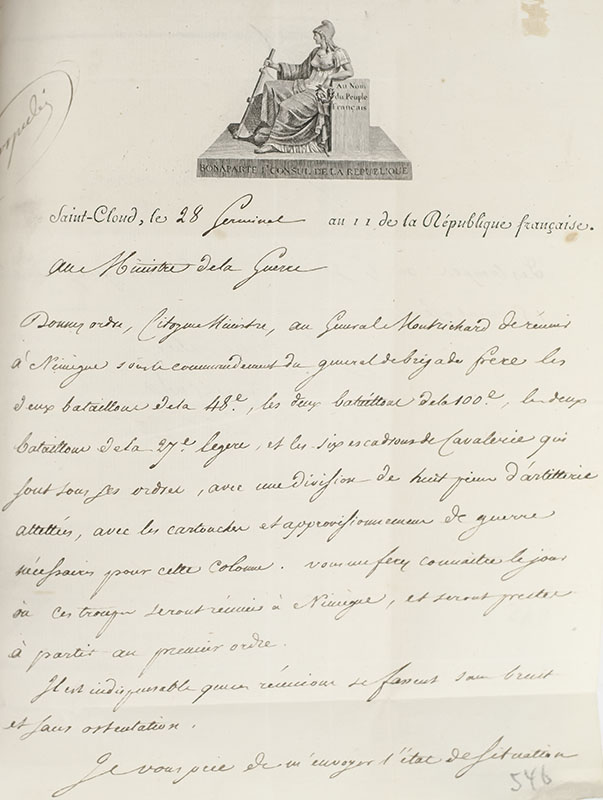 Au Nom
du Peuple
Français
BONAPARTE 1er CONSUL DE LA REPUBLIQUE
Saint-Cloud, le 28 Germinal an 11 de la République française.
Au Ministre de la Guerre
Donnez ordre, Citoyen Ministre, au General Montrichard de réunir
à Nimègue sous le commandement du general de brigade frere les
deux bataillons de la 48e, les deux bataillons de la 100e, les deux
bataillons de la 27e legere, et les six escadrons de Cavalerie qui
sont sous ses ordres, avec une division de huit pieces d'artillerie
attelées, avec les cartouches et approvisionnemens de guerre
nécessaires pour cette colonne. vous me ferez connaitre le jour
où ces troupes seront réunies à Nimègue, et seront pretes
à partir au premier ordre.
Il est indispensable que ces réunions se fassent sans bruit
et sans ostentation.
Je vous prie de m'envoyer l'état de situation
546